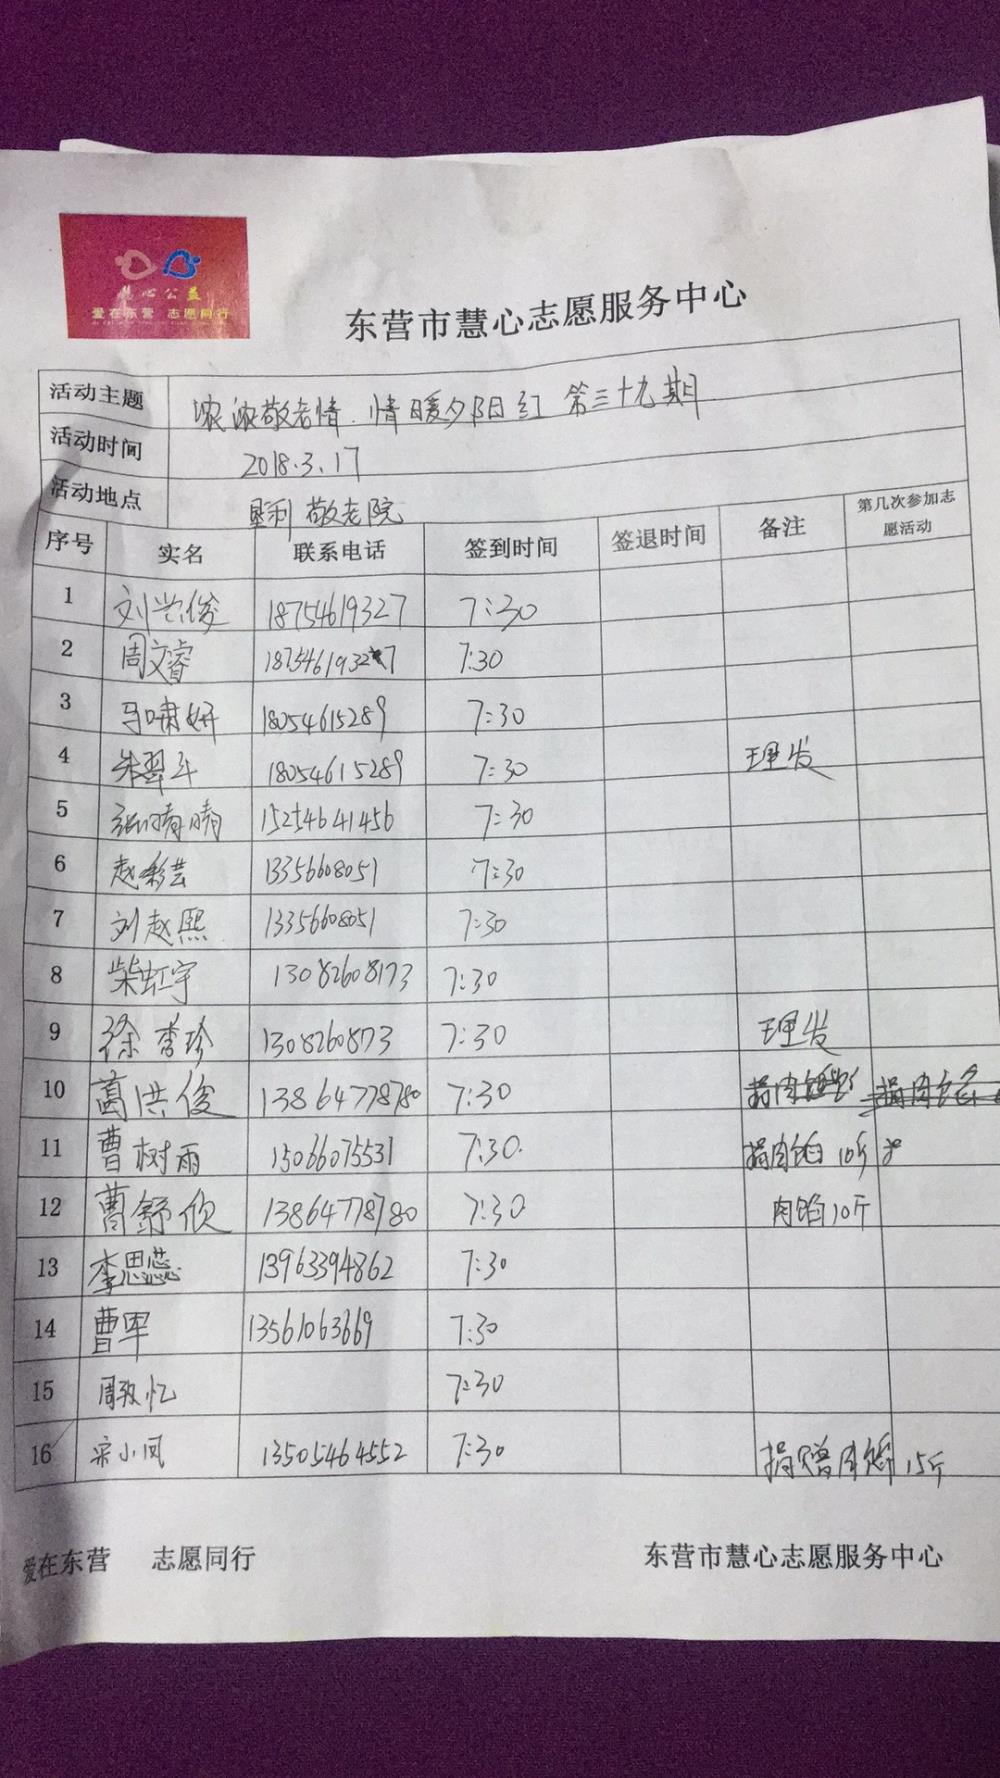 慧心公益
爱在东营 志愿同行
东营市慧心志愿服务中心
活动主题 浓浓敬老情.情暖夕阳红 第三十九期
活动时间 2018.3.17
活动地点 垦利敬老院
序号 实名 联系电话 签到时间 签退时间 备注 第几次参加志愿活动
1 刘兴俊 18754619327 7:30
2 周文睿 18754619327 7:30
3 马啸妍 18054615289 7:30
4 朱翠斗 18054615289 7:30 理发
5 张晴晴 15254641456 7:30
6 赵彩芸 13356608051 7:30
7 刘赵熙 13356608051 7:30
8 柴虹宇 13082608173 7:30
9 徐秀珍 1308260873 7:30 理发
10 葛洪俊 13864778780 7:30
11 曹树雨 15066075531 7:30. 捐肉馅 10斤
12 曹舒欣 13864778780 7:30 肉馅10斤
13 李思蕊 13963394862 7:30
14 曹军 13561063669 7:30
15 周 忆 7:30
16 宋小凤 13505464552 7:30 捐赠肉馅 15斤
爱在东营 志愿同行 东营市慧心志愿服务中心